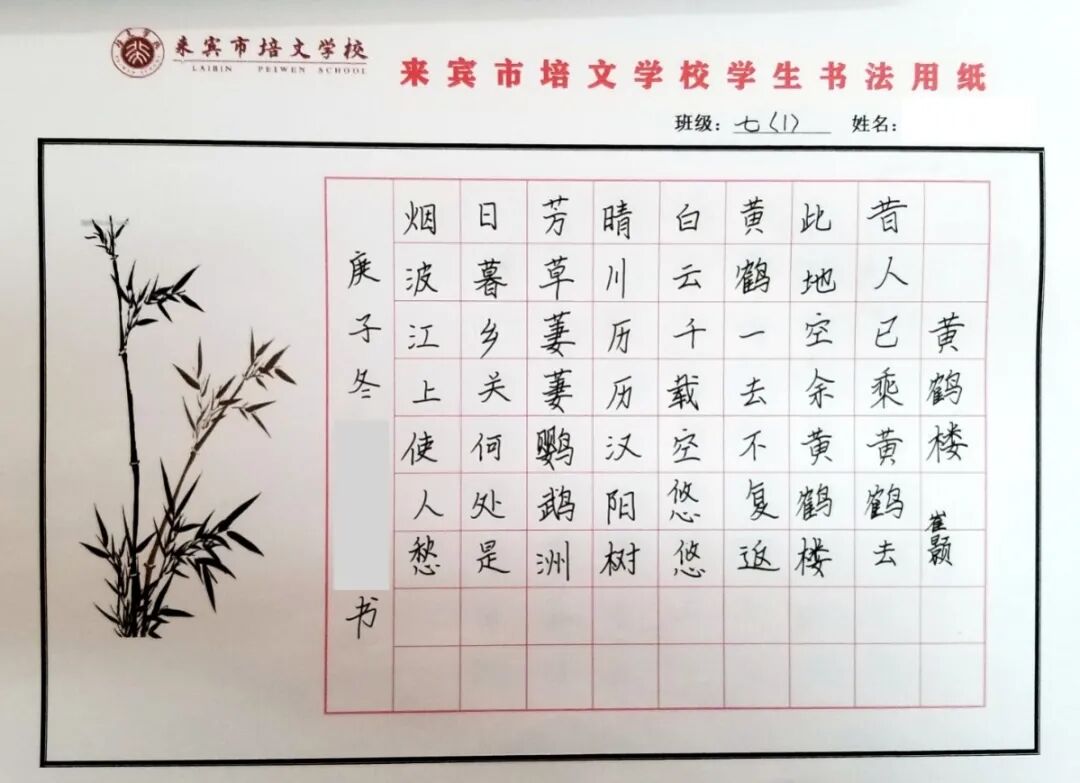 来宾市培文学校
LAIBIN PEIWEN SCHOOL
来宾市培文学校学生书法用纸
班级：七（1） 姓名：
黄鹤楼 崔颢
昔人已乘黄鹤去
此地空余黄鹤楼
黄鹤一去不复返
白云千载空悠悠
晴川历历汉阳树
芳草萋萋鹦鹉洲
日暮乡关何处是
烟波江上使人愁
庚子冬 书